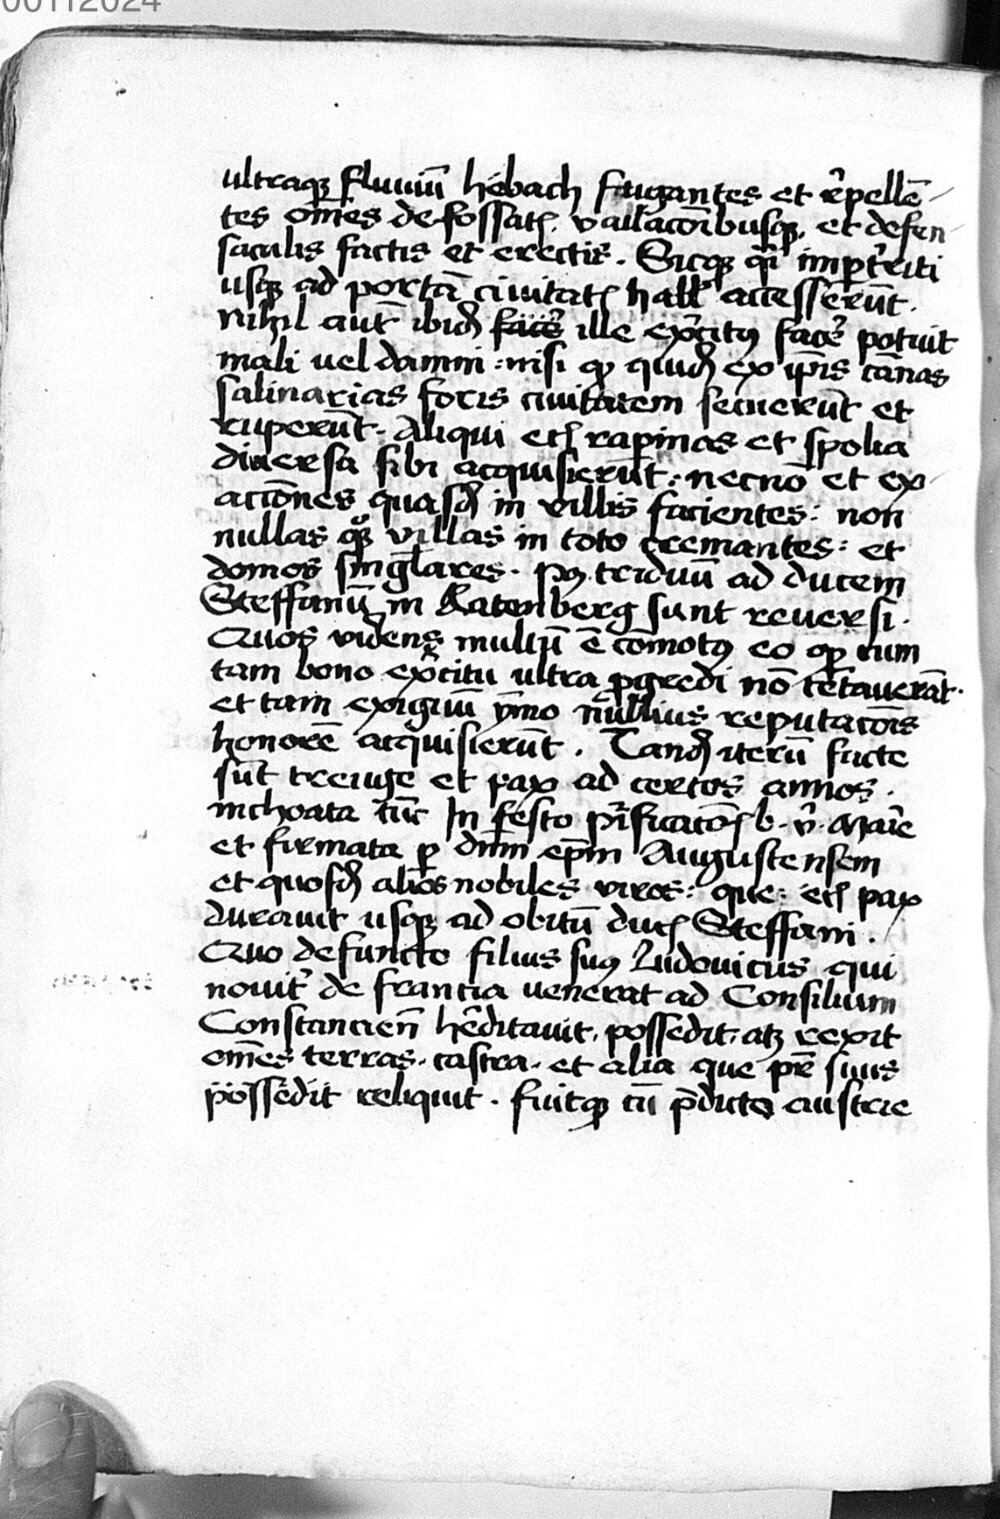 00112024
ultraq fluuiū hébach fugantes et r̄pellē-
tes om̄es de fossat vallaconībusq. et defen
saculis factis et erectis. Sicq qi imp̄triti
usq ad portā ciuitat hall accesserūt.
Nihil aut̄ ibid faće ille exc̄itꝰ face potuit
mali uel damni : nisi ꝙ quid ex ip̄is cānas
salinarias foris ciuitatem secuerūt et
ruperūt. Aliqui et rapinas et spolia
diuersa sibi acquisierūt : necnō et ex
actiōnes quasd in villis facientes : non
nullas qꝫ villas in toto cremantes : et
domos singlares. pꝰ triduū ad ducem
Steffanū in Ratenberg sunt reuersi.
Quos videns multū ē cōmotꝰ eo ꝙ cum
tam bono exc̄itu ultra ꝓgredi nō tētauerāt.
et tam exiguū ymo nullius reputacōis
honorē acquisierūt. Tand iterū facte
sūt treuge et pax ad certos annos.
inchoata tūc In festo pificatōe b. v. Marie
et firmata p dn̄m ep̄m Augustensem
et quosd aliōs nobiles viros : que : et pax
durauit usq ad obitū duc Steffani.
Quo defuncto filius suꝰ Ludouicus qui
nouit̄ de francia venerat ad Consilium
Constancien̄ hēditauit, possedit, atꝫ rexit
om̄es terras. castra. et alia que pr̄ suus
possedit reliquit. fuitq cū p̄dicto austrie